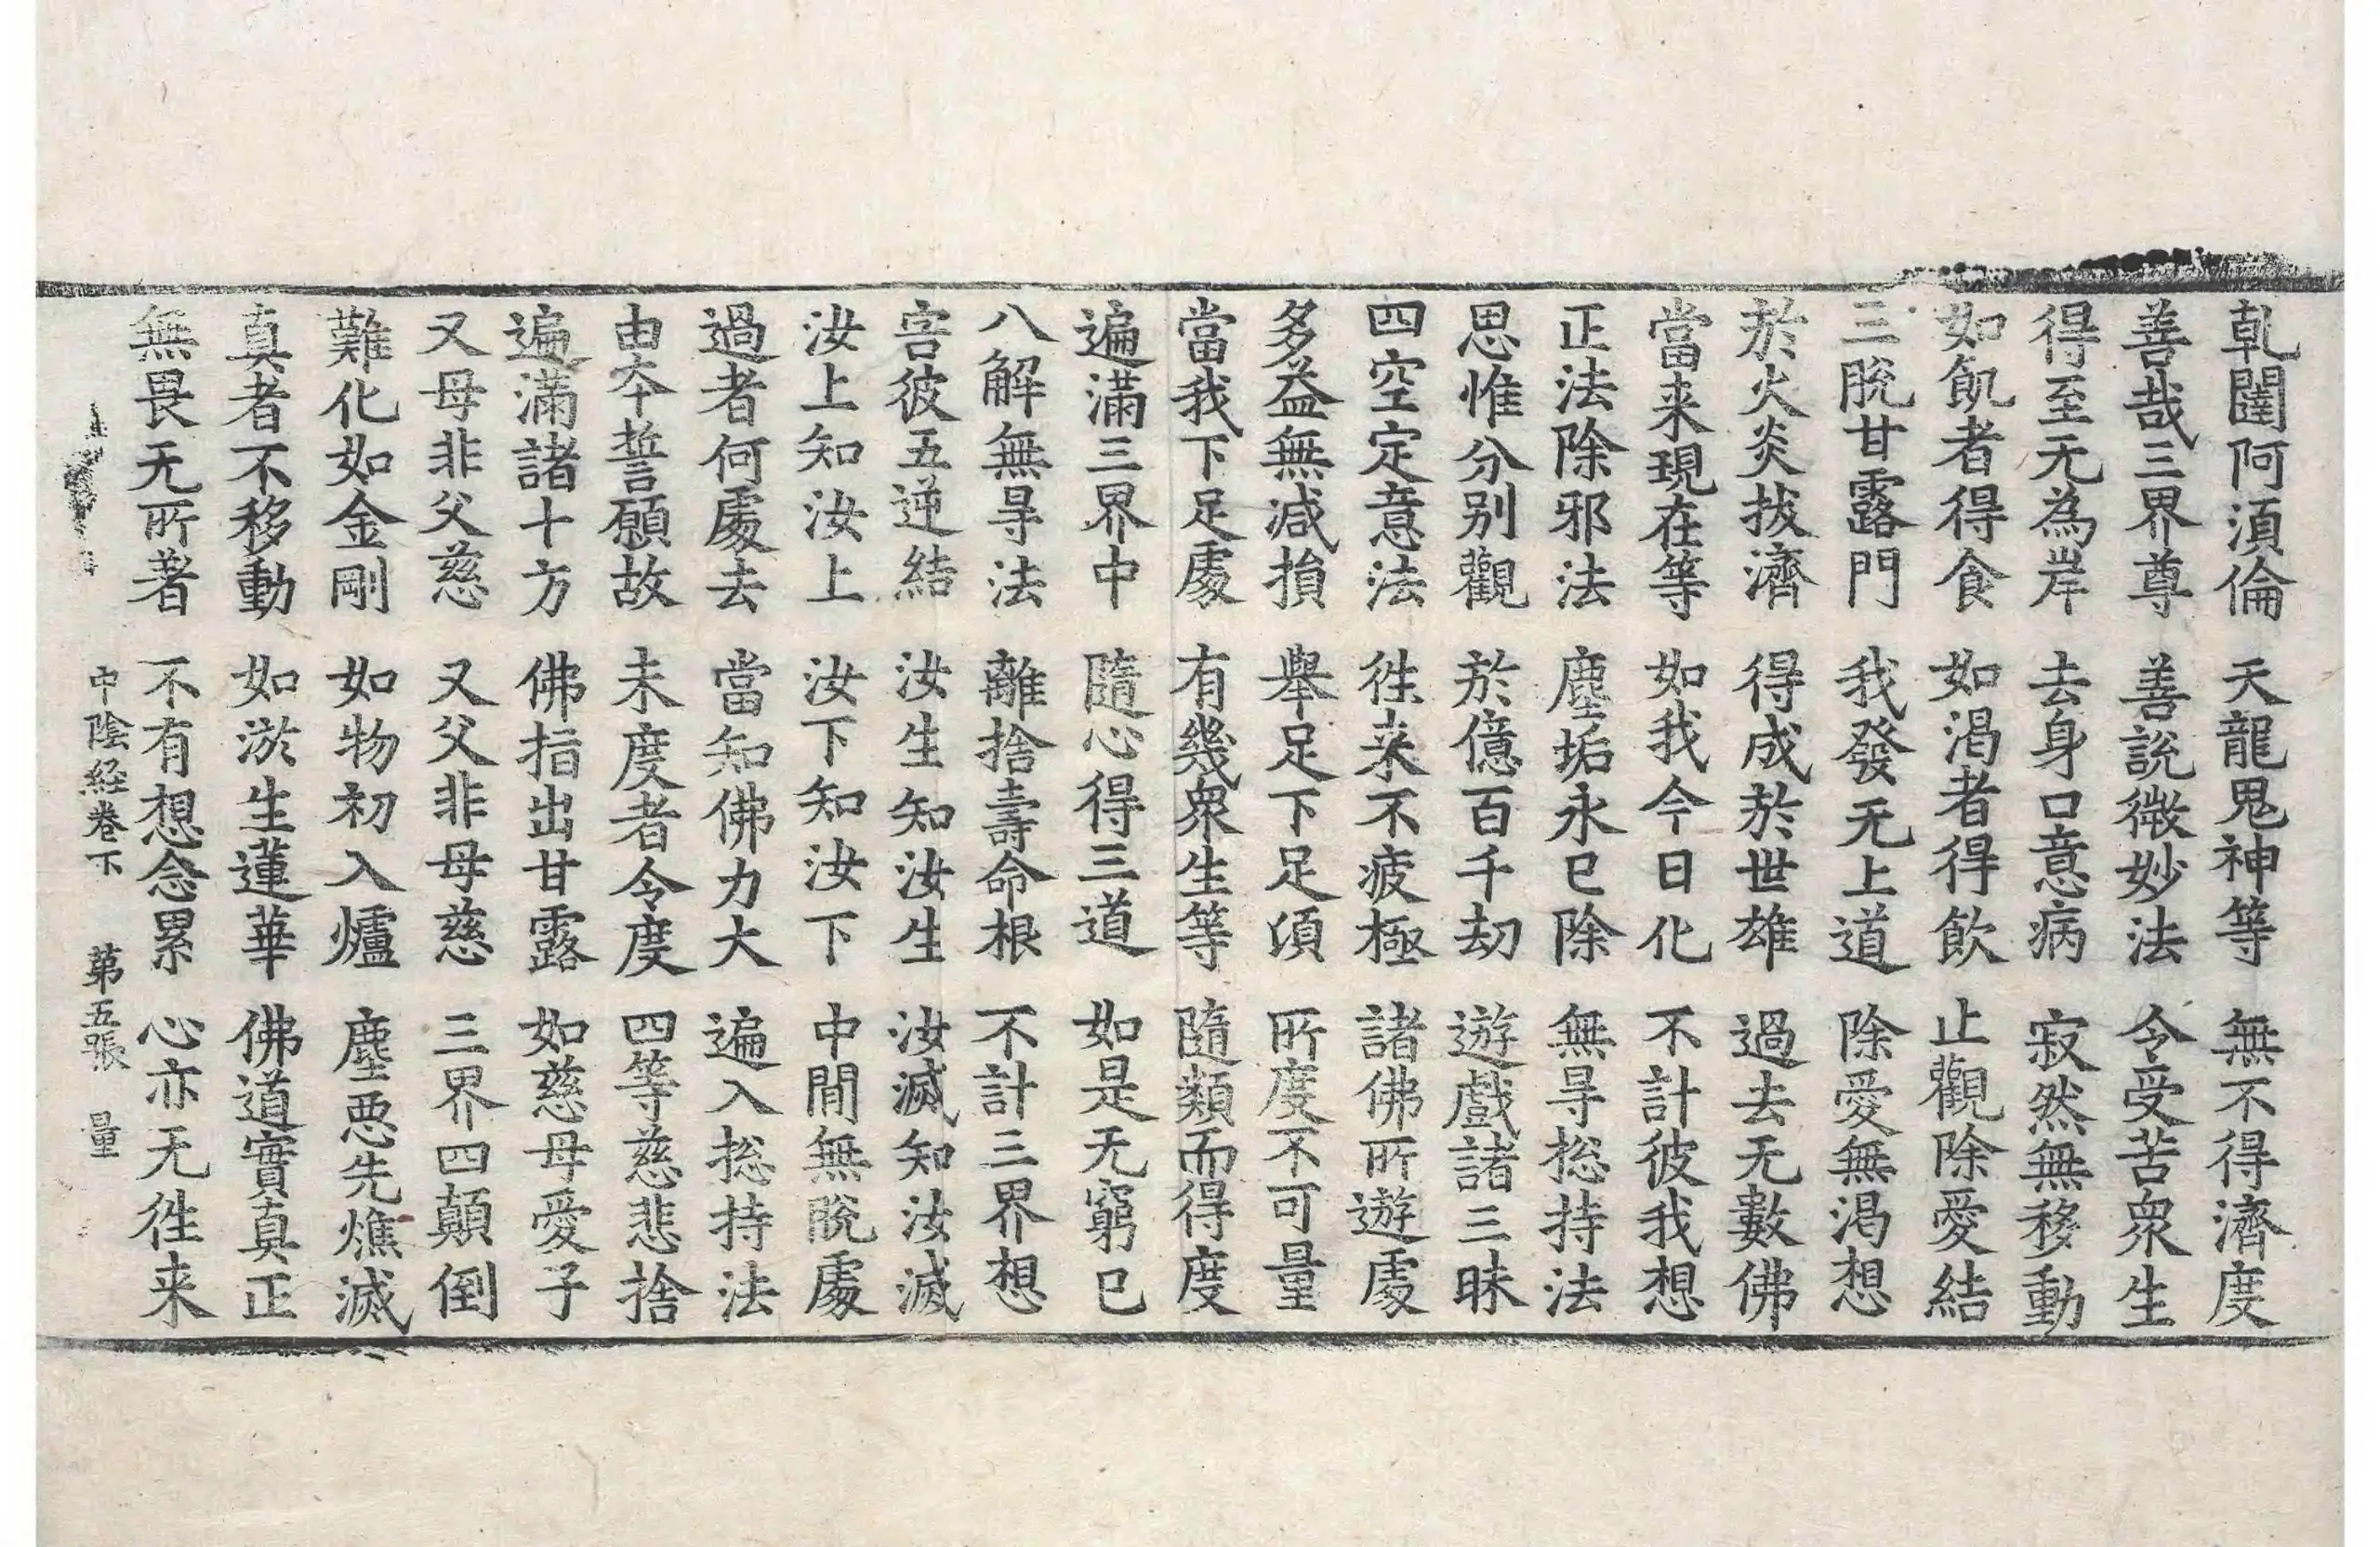 乹闥阿湏倫 天龍鬼神等 無不得濟度
善哉三界尊 善說微妙法 令受苦衆生
得至无為岸 去身口意病 寂然無移動
如飢者得食 如渴者得飲 止觀除愛結
三脫甘露門 我發无上道 除愛無渴想
於火炎拔濟 得成於世雄 過去无數佛
當来現在等 如我今日化 不計彼我想
正法除邪法 塵垢永已除 無㝵捴持法
思惟分別觀 於億百千劫 遊戲諸三昧
四空定意法 徃来不疲極 諸佛所遊處
多益無減損 舉足下足湏 所度不可量
當我下足處 有幾衆生等 隨類而得度
遍滿三界中 隨心得三道 如是无窮已
八解無㝵法 離捨壽命根 不計三界想
害彼五逆結 汝生知汝生 汝滅知汝滅
汝上知汝上 汝下知汝下 中間無脫處
過者何處去 當知佛力大 遍入捴持法
由夲誓願故 未度者令度 四等慈悲捨
遍滿諸十方 佛指出甘露 如慈母愛子
又母非父慈 又父非母慈 三界四顛倒
難化如金剛 如物初入爐 塵惡先燋滅
真者不移動 如淤生蓮華 佛道實真正
無畏无所著 不有想念累 心亦无徃来
中陰経卷下 第五張 量